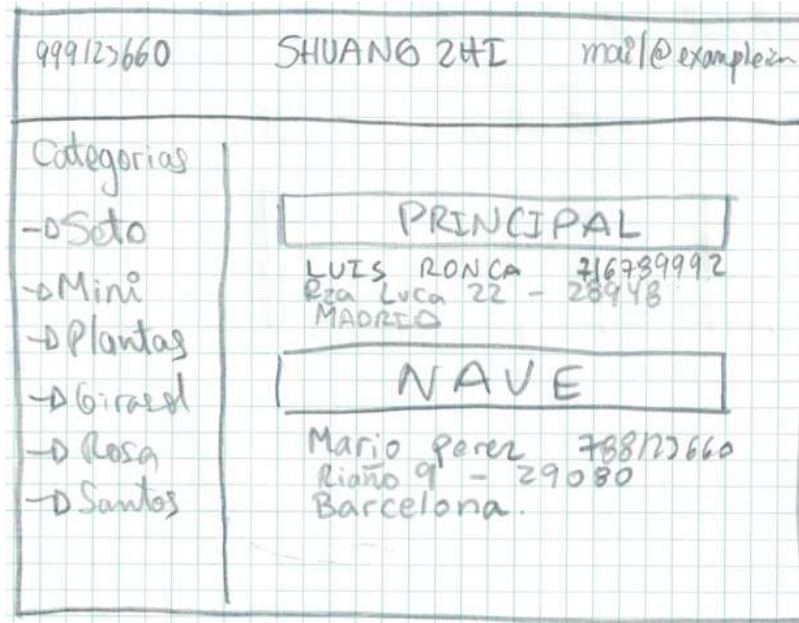 999123660 SHUANG ZHI mail@example.com
Categorias
Seto
Mini
Plantas
Girasol
Rosa
Santos
PRINCIPAL
LUIS RONCA 716789992
Pza Luca 22 - 28948
MADRID
NAVE
Mario perez 788123660
Riaño 9 - 29080
Barcelona.